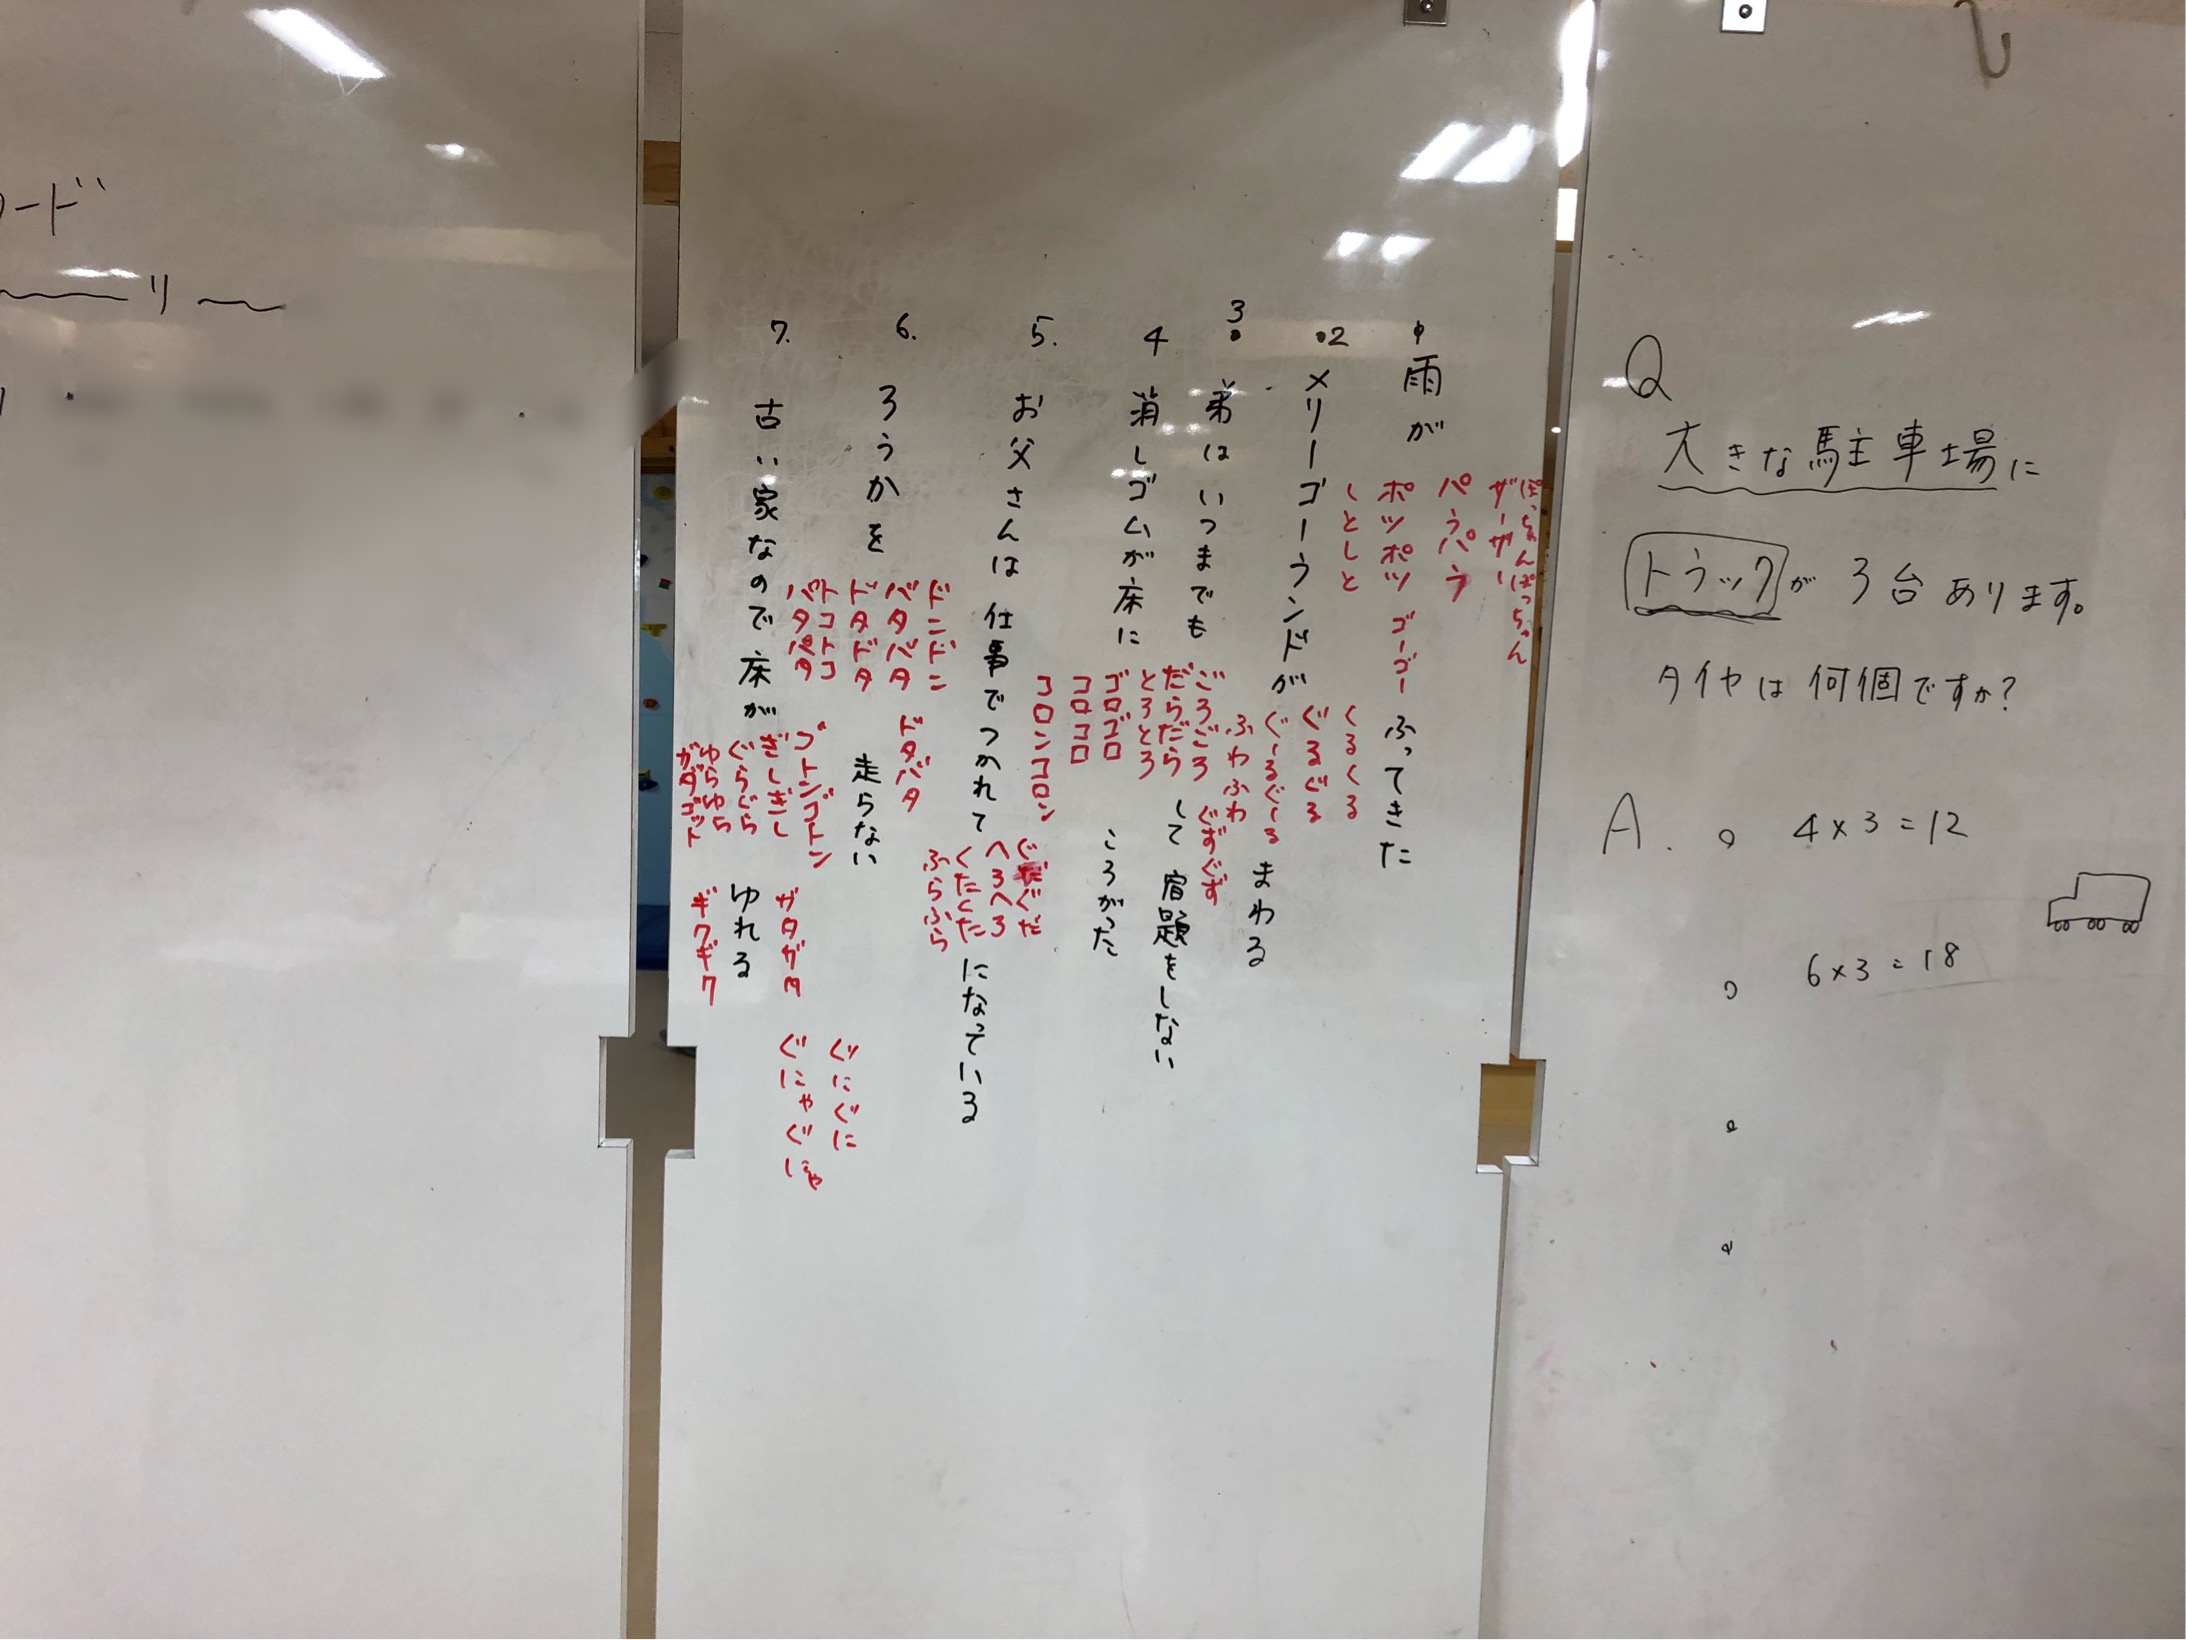 ード
リ
1 雨が
ぽっちゃんぽっちゃん
ザーザー
パラパラ
ポツポツ
ゴーゴー
しとしと
ふってきた
2. メリーゴーランドが
くるくる
ぐるぐる
ぐーるぐーる
ふわふわ
まわる
3. 弟はいつまでも
ごろごろ
だらだら
とろとろ
ぐずぐず
して宿題をしない
4 消しゴムが床に
ゴロゴロ
コロコロ
コロンコロン
ころがった
5. お父さんは仕事でつかれて
ぐだぐだ
へろへろ
くたくた
ふらふら
になっている
6. ろうかを
ドンドン
バタバタ
ドタドタ
トコトコ
パタパタ
ドタバタ
走らない
7. 古い家なので床が
ゴトンゴトン
ぎしぎし
ぐらぐら
ゆらゆら
ガタゴット
ガタガタ
ギクギク
ぐにぐに
ぐにゃぐにゃ
ゆれる
Q
大きな駐車場に
トラックが3台あります。
タイヤは何個ですか?
A. 4×3=12
6×3=18